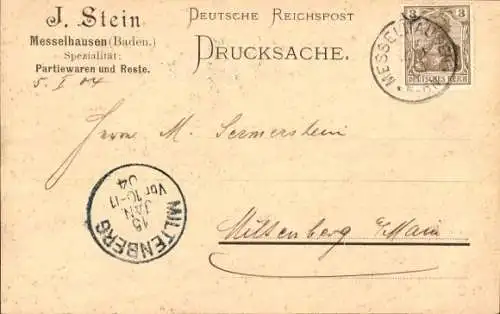 J. Stein
Messelhausen (Baden.)
Spezialität:
Partiewaren und Reste.
5. I 04
DEUTSCHE REICHSPOST
DRUCKSACHE.
3 3
DEUTSCHES REICH
MESSELHAUSEN
Herrn M. Sermerstein
Miltenberg a/Main
MILTENBERG
15
JAN
04
Vor 10-11